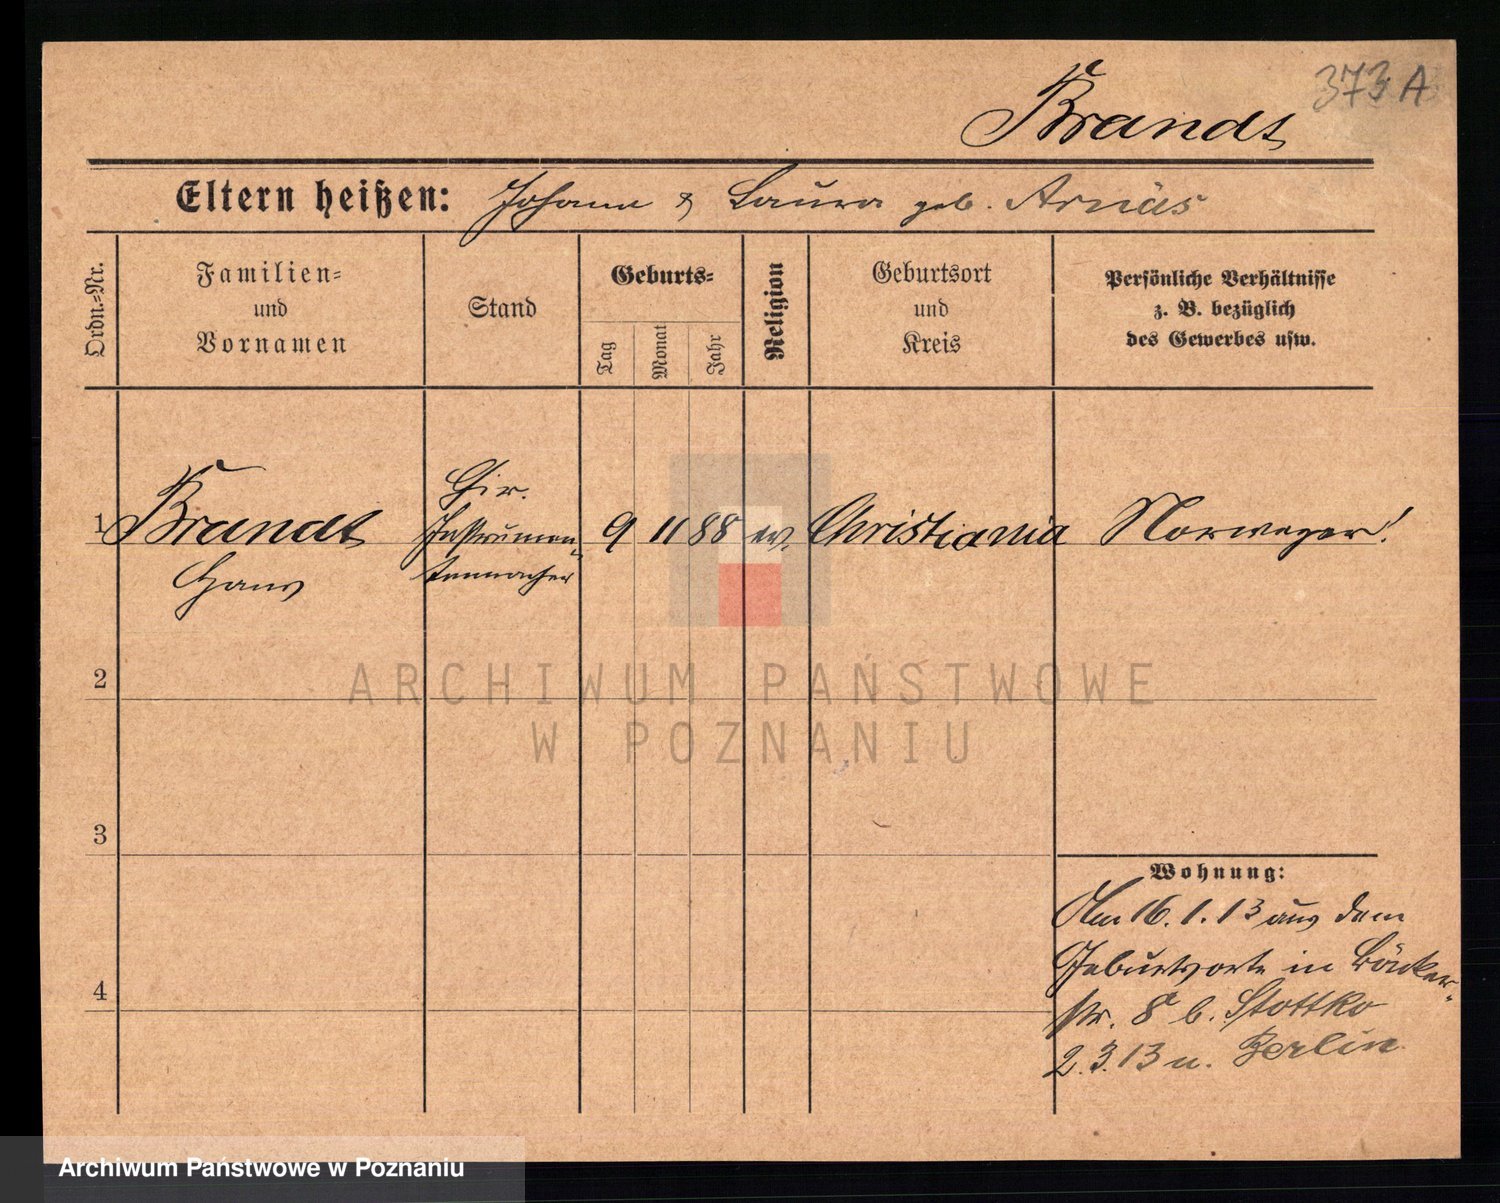 373 A
Brandt
Eltern heißen: Johann & Laura geb. Arnäs
Ordn.=Nr.
Familien=
und
Vornamen
Stand
Geburts=
Tag
Monat
Jahr
Religion
Geburtsort
und
Kreis
Persönliche Verhältnisse
z. B. bezüglich
des Gewerbes usw.
1 Brandt
Hans
Chir.
Instrumen-
tenmacher
9 11 88 ev. Christiania Norweger!
2
3
4
Wohnung:
Am 16.1.13 aus dem
Geburtsorte in Bäcker-
str. 8 b. Stottko
2.3.13 n. Berlin
ARCHIWUM PAŃSTWOWE
W POZNANIU
Archiwum Państwowe w Poznaniu